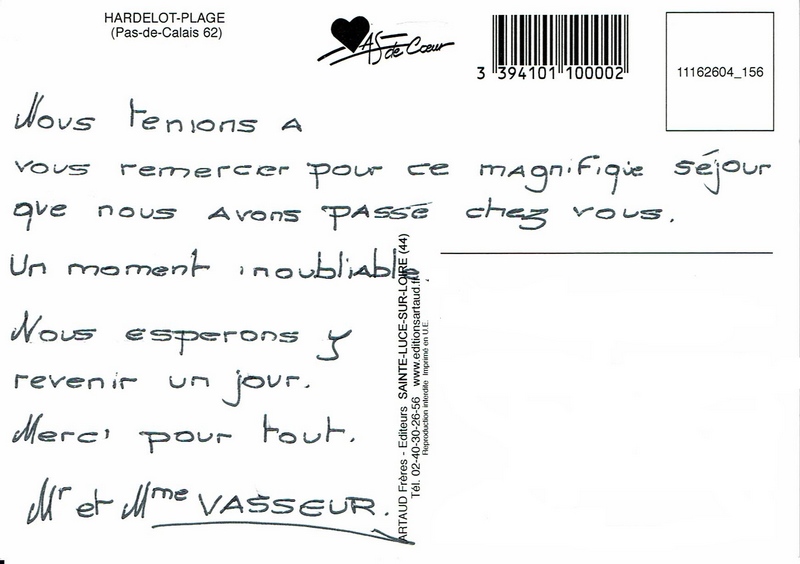 HARDELOT-PLAGE
(Pas-de-Calais 62)
AS de Cœur
3 394101 100002
11162604_156
Nous tenions A
vous remercer pour ce magnifique séjour
que nous avons passé chez vous.
Un moment inoubliable.
Nous esperons y
revenir un jour.
Merci pour tout.
Mr et Mme VASSEUR.
ARTAUD Frères - Editeurs SAINTE-LUCE-SUR-LOIRE (44)
Tél. 02-40-30-26-56 www.editionsartaud.fr
Reproduction interdite Imprimé en U.E.